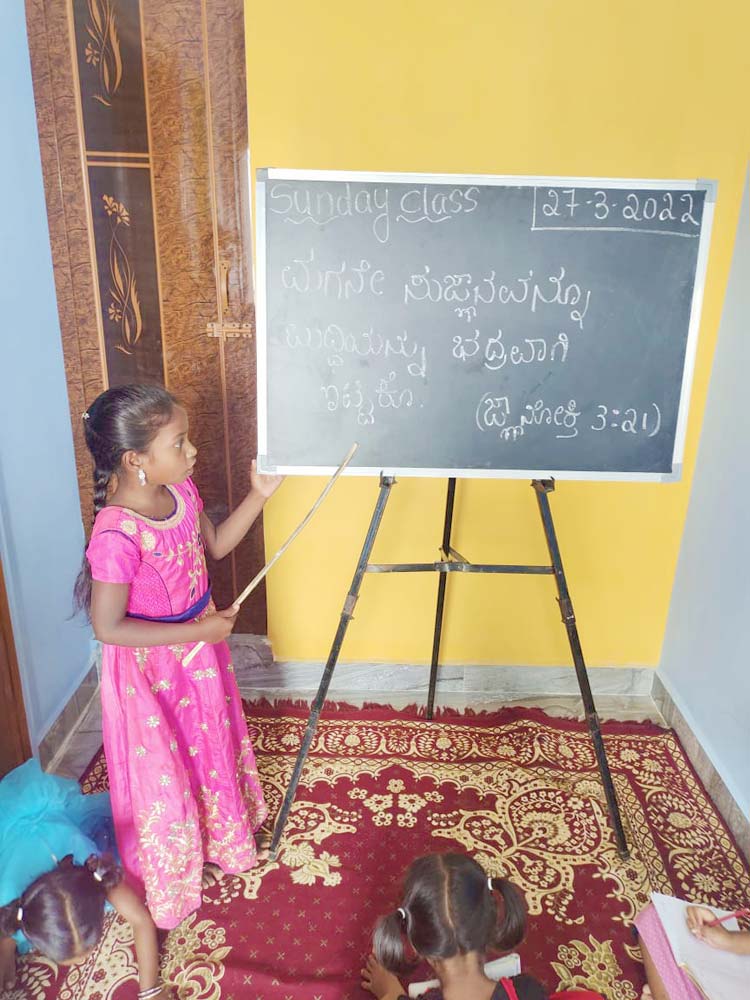 Sunday class
27-3-2022
ಮಗನೇ ಸುಜ್ಞಾನವನ್ನೂ
ಬುದ್ದಿಯನ್ನು ಭದ್ರವಾಗಿ
ಇಟ್ಟಕೊ.
(ಜ್ಞಾನೋಕ್ತಿ 3:21)